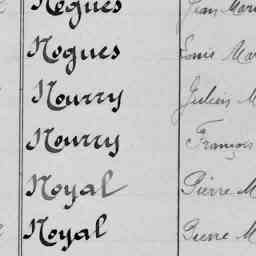 Nogues Jean Mari
Nogues Louis Mar
Nourry Julien M
Nourry François
Noyal Pierre M
Noyal Pierre M